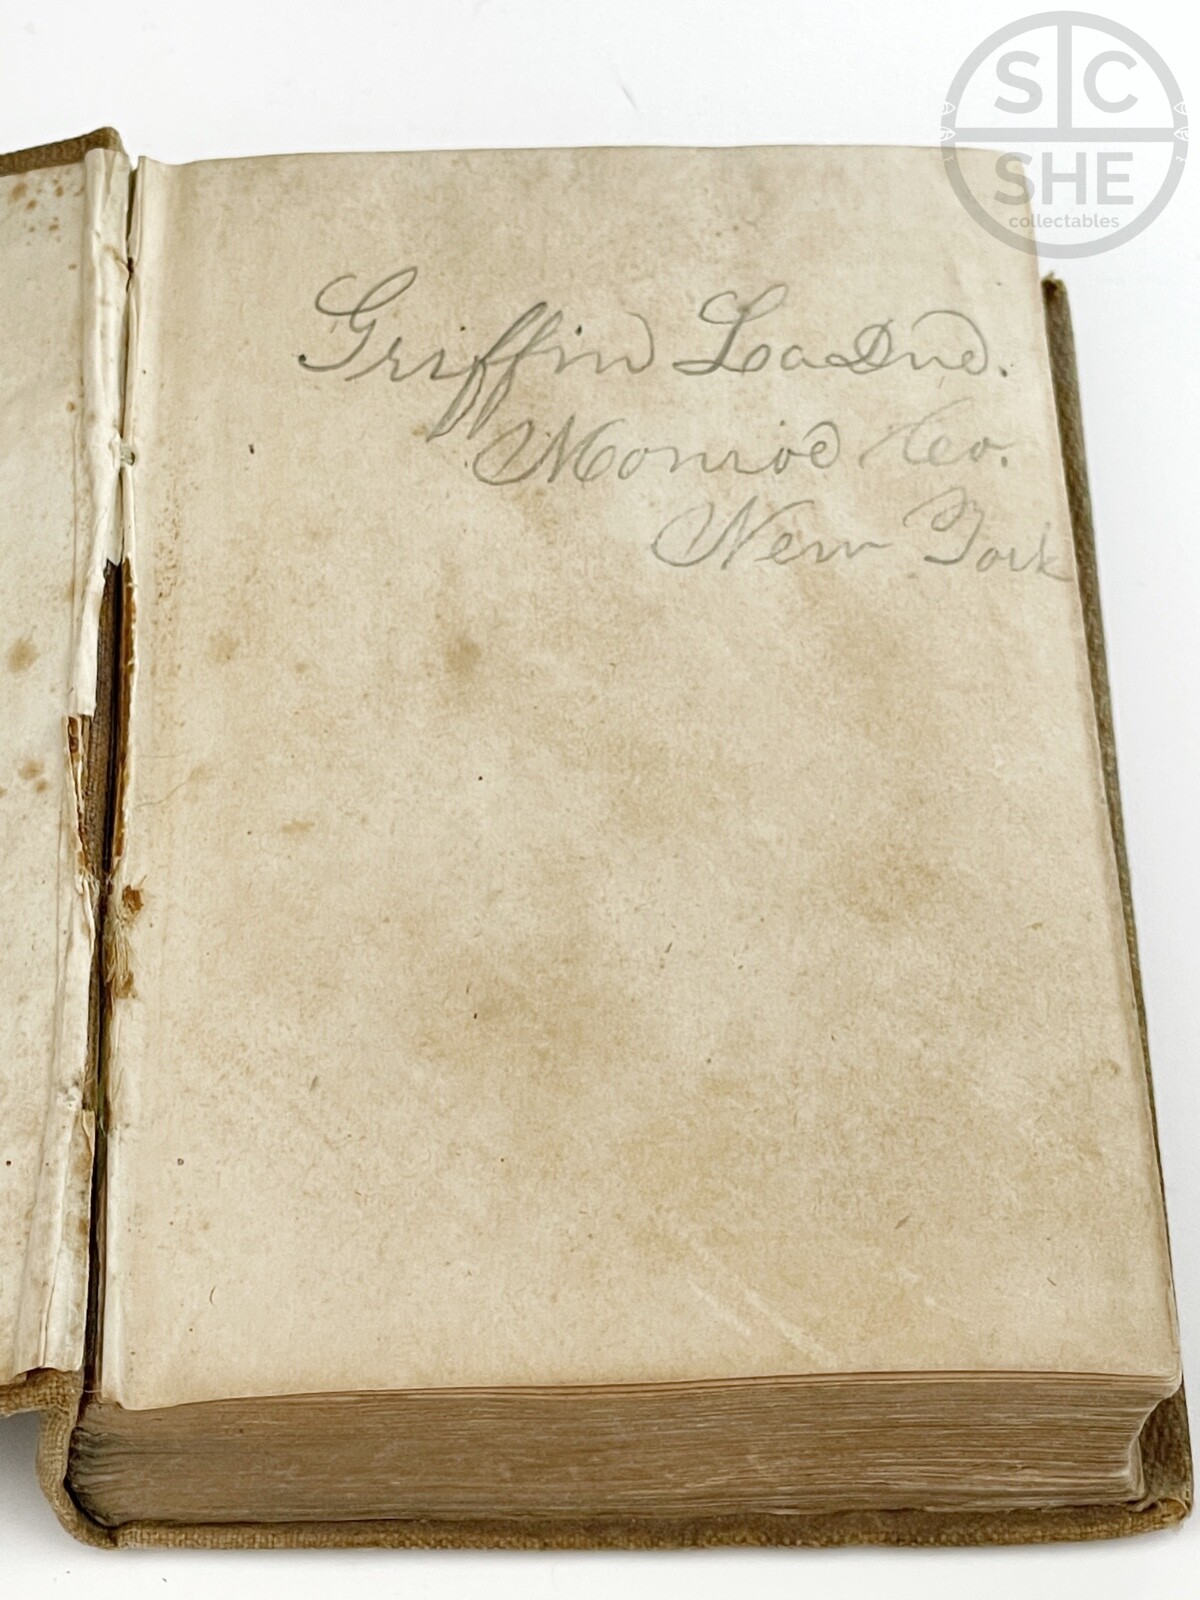 S C
SHE
collectables
Griffin LaDue.
Monroe Co.
New York